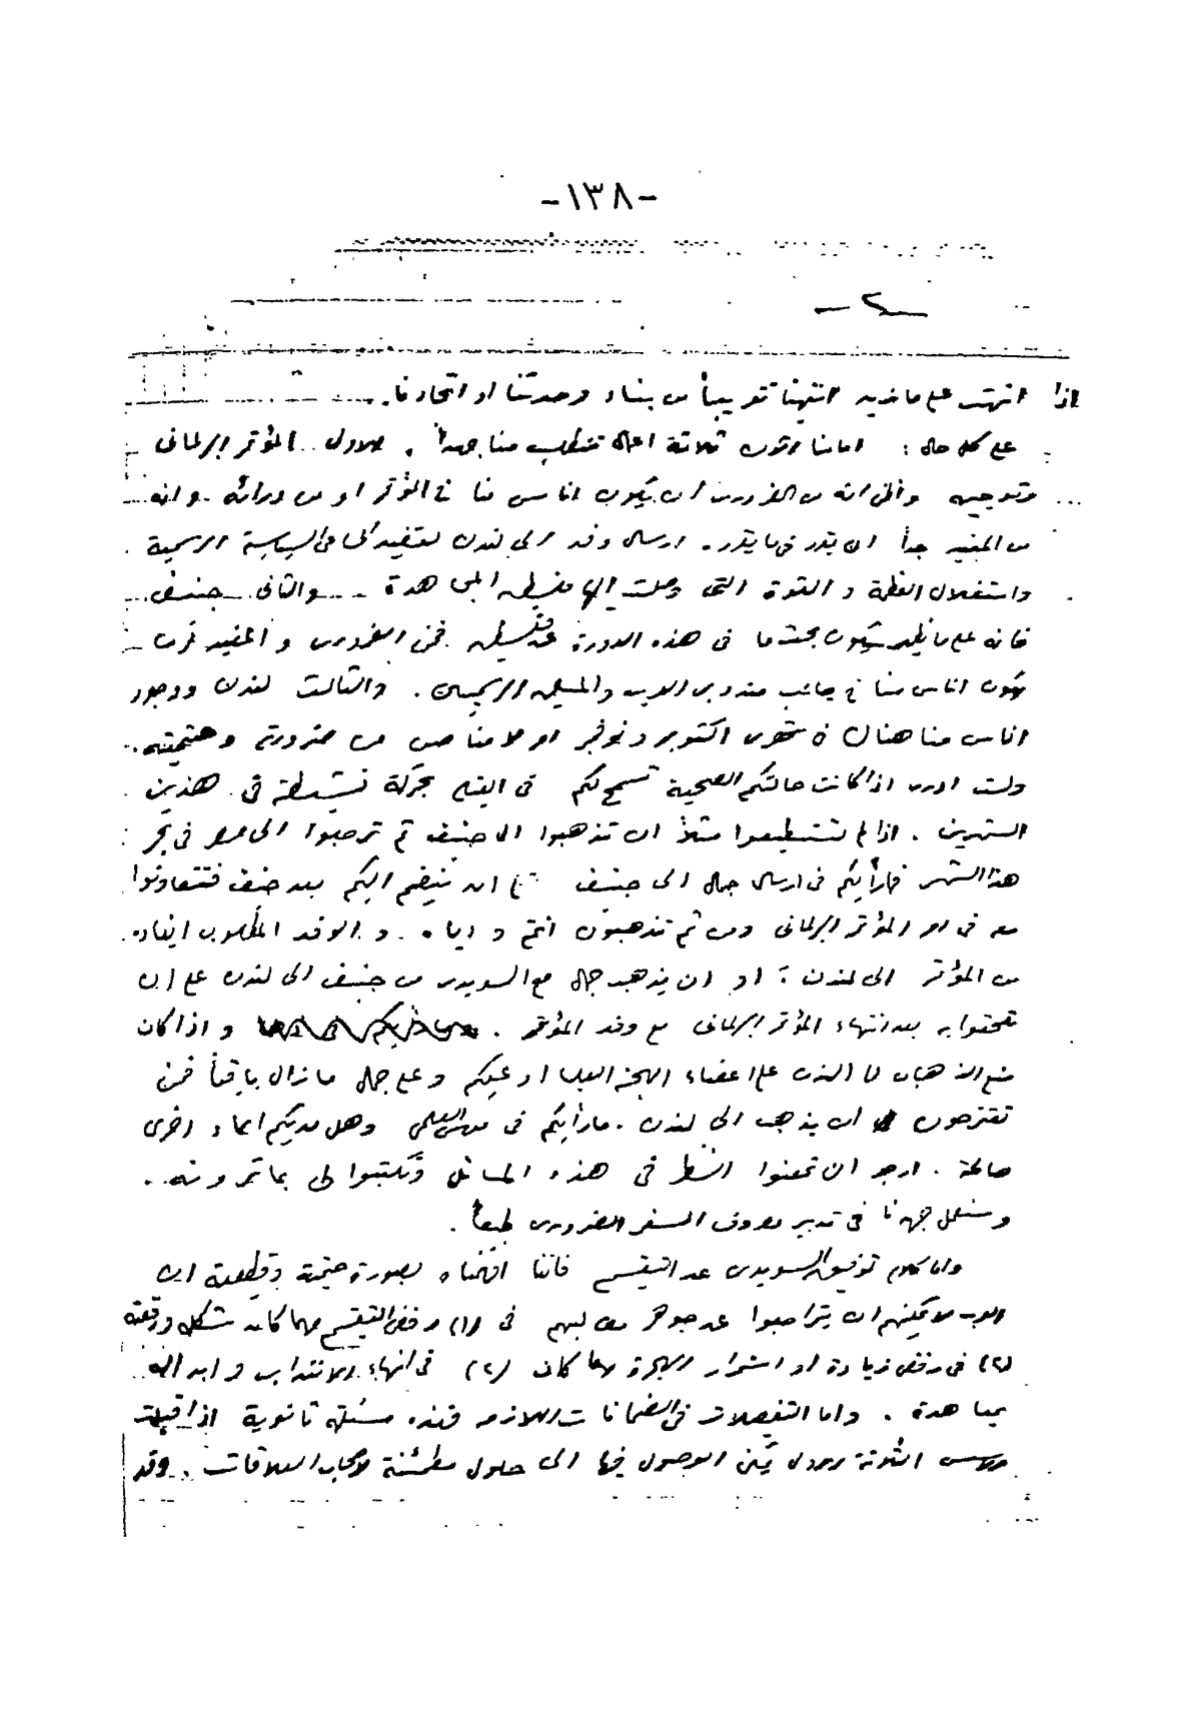 -١٣٨-
-٢-
اذا انتهت على ما نريد انتهينا تقريباً من بناء وحدتنا او اتحادنا.
على كل حال : امامنا الآن ثلاثة اعمال تتطلب منا جهداً . الاول المؤتمر البرلماني
وتوجيهه واظن انه من الضروري ان يكون اناس منا في المؤتمر او من ورائه . وانه
من المفيد جداً ان يقرر في ما يقرر . ارسال وفد الى لندن لتعضيد في السياسة الرسمية
واستغلال العظمة و القوة التي وصلت اليها فلسطين المجاهدة .. والثاني جنيف
فانه على ما يظهر سيكون بحث ما في هذه الدورة عن فلسطين فمن الضروري و المفيد
يكون اناس منا في جانب مندوبي العرب والمسلمين الرسميين . والثالث لندن ووجود
اناس منا هناك في شهري اكتوبر و نوفمبر امر لا مناص من ضرورته وحتميته ..
ولست ادري اذا كانت حالتكم الصحية تسمح لكم في القيام بحركة نشيطة في هذين
الشهرين . اذا لم تستطيعوا مثلاً ان تذهبوا الى جنيف ثم ترجعوا الى مصر في بحر
هذا الشهر فما رأيكم في ارسال جمال الى جنيف ان ينضم اليكم بعد جنيف فتتعاونوا
معه في امر المؤتمر البرلماني ومن ثم تذهبون انتم و اياه . و الوفد المطلوب ايفاده
من المؤتمر الى لندن ؟ او ان يذهب جمال مع السويدي من جنيف الى لندن على ان
تلحقوا به بعد انتهاء المؤتمر البرلماني مع وفد المؤتمر . واذا كان
منع الذهاب الى لندن على اعضاء اللجنة العليا او عليكم وعلى جمال ما زال باقياً فمن
تقترحون ان يذهب الى لندن . ما رأيكم في موسى العلمي وهل لديكم اسماء اخرى
صالحة . ارجو ان تمعنوا النظر في هذه المسائل وتكتبوا لي بما ترونه ..
وسنعمل جهدنا في تدبير مصروف السفر الضروري طبعاً .
واما كلام توفيق السويدي عن التقسيم فاننا افهمناه بصورة حتمية وقطعية ان
العرب لا يمكنهم ان يتراجعوا عن جوهر مطالبهم في (١) رفض التقسيم مهما كان شكله ورقعته
(٢) في رفض زيادة او استمرار الهجرة مهما كان (٣) في انهاء الانتداب و ابداله
بمعاهدة . واما التفصلات في الضمانات اللازمة فهذه مسئلة ثانوية اذا قبلت
الثلاثة الاولى يمكن الوصول فيها الى حلول مطمئنة لاصحاب العلاقات . وقد